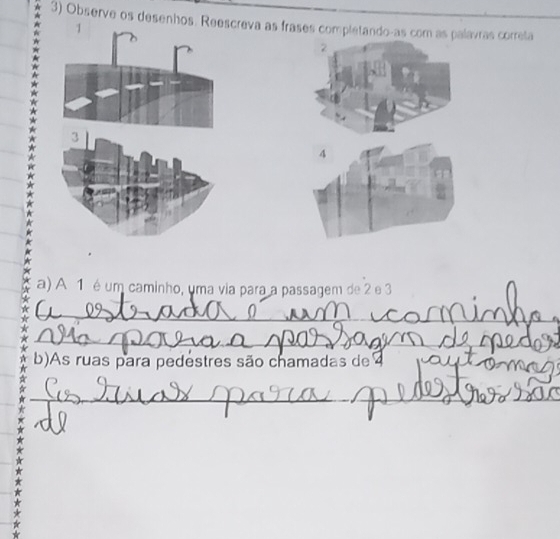 3) Observe os desenhos. Reescreva as frases completando-as com as palavras correta
1
2
3
4
a) A 1 é um caminho, uma via para a passagem de 2 e 3
a estrada é um caminho,
via para a passagem de pedest
b)As ruas para pedestres são chamadas de 4
as ruas para pedestres são
de